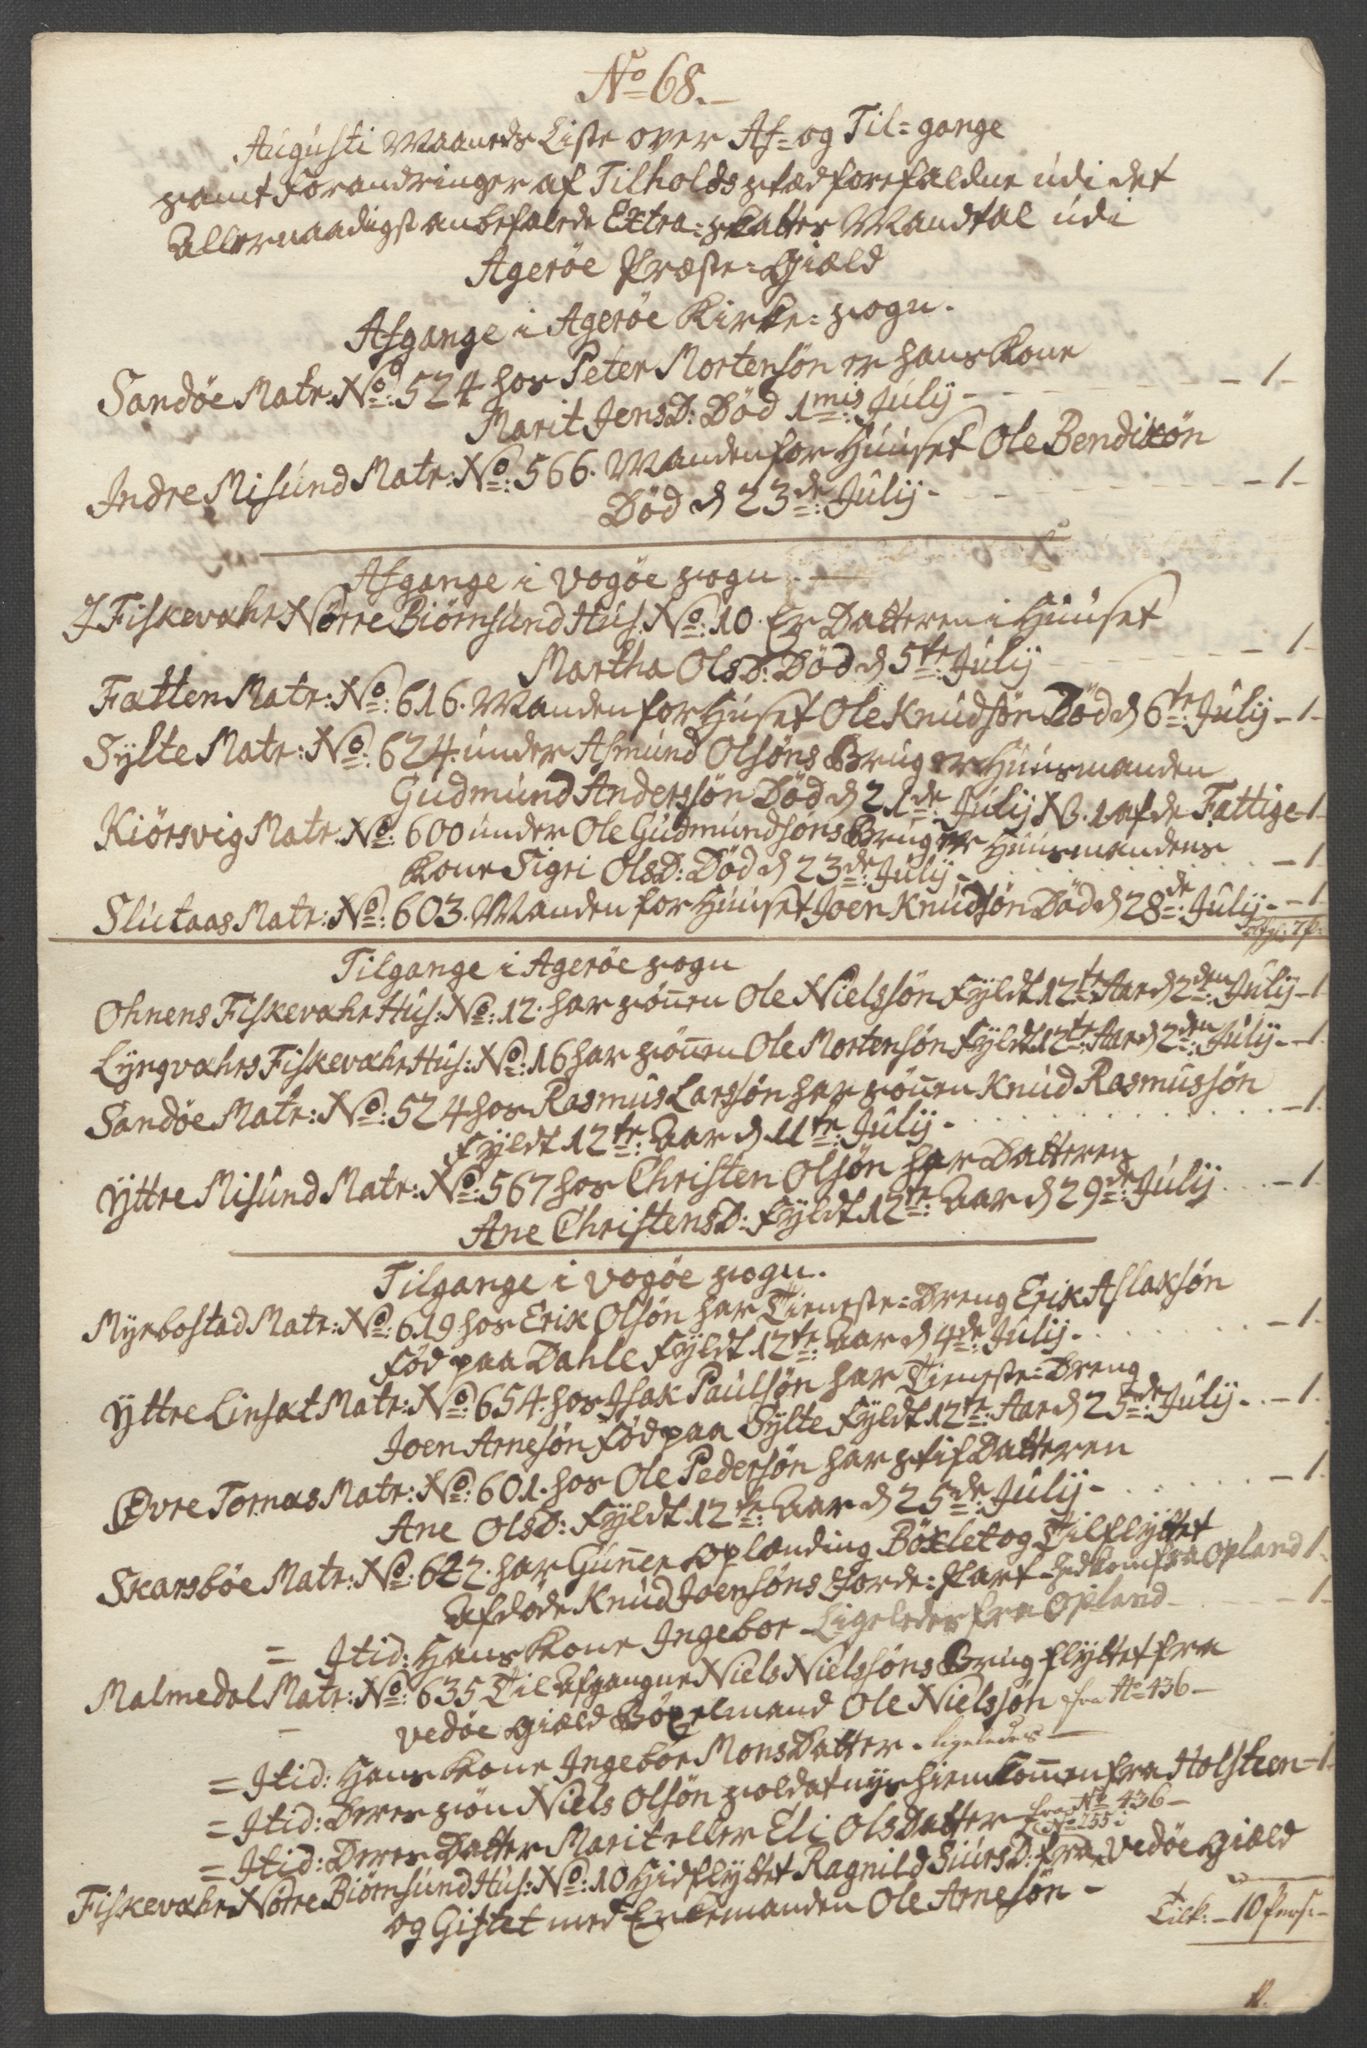 No 68.
Augusti Maaneds Liste over Af- og Til-gange
samt Forandringer af Tilholds stæd forefaldne udi det
Allernaadigst anbefalede Extra-skatter Mandtal udi
Agerøe Præste-Giæld
Afgange i Agerøe Kirke-sogn.
Sandøe Matr: No: 524 hos Peter Mortensøn er hans kone
Marit JensD: Død 1mis July - - 1 -
Indre Misund Matr: No: 566. Manden for Huuset Ole Bendixøn
Død d 23de: Julij - - 1 -
Afgange i Vogøe sogn
I Fiskevahr Nørre Biørnsund Hus. No: 10. Er Datteren i Huuset
Martha OlsD: Død d 5te: Julij - 1 -
Fatten Matr: No: 616. Manden for Huset Ole Knudsøn Død d 6te: Julij - 1 -
Sylte Matr: No. 624. under Asmund Olsøns Brug er Huusmanden
Gudmund Anderssøn Død d 21de: Julij N. 1 af de Fattige - 1 -
Kiørsvig Matr: No: 600 under Ole Gudmundsøns Brug er Huusmandens
kone Sigri OlsD: Død d 23de: Julij - - 1
Slutaas Matr: No: 603. Manden for Huuset Joen Knudsøn Død d 28de: Julij. - 1
Afg: 7 p:
Tilgange i Agerøe sogn
Ohnens Fiskevahr Hus: No: 12. har sønnen Ole Nielssøn Fyldt 12te: Aar d 2den: Julij - 1
Lyngvahrs Fiskevahr Hus: No: 16 har sønnen Ole Mortensøn Fyldt 12te: Aar d 2den: Julij - 1
Sandøe Matr: No: 524 hos Rasmus Larssøn har sønnen Knud Rasmussøn
Fyldt 12te: Aar d 11te: Julij. - 1.
Yttre Misund Matr: No: 567 hos Christen Olsøn har Datteren
Ane ChristensD: Fyldt 12te: Aar d 29de: Julij - 1
Tilgange i Vogøe sogn.
Myrbostad Matr: No: 619 hos Erik Olsøn har Tieneste-Dreng Erik Aslaksøn
Fød paa Dahle Fyldt 12te: Aar d 4de: Julij. - 1.
Yttre Linsæt Matr: No: 654. hos Isak Paulsøn har Tieneste-Dreng
Joen Arnesøn Fød paa Sylte Fyldt 12te: Aar d 25de: Julij. - 1.
Øvre Tornes Matr: No: 601. hos Ole Pedersøn har stif Datteren
Ane OlsD: Fyldt 12te: Aar d 25de: Julij - - 1.
Skarsbøe Matr: No: 642. har Gunner Oplænding Bøxlet og Tilflyttet
Afdøde Knud Joensøns Jorde-Part hidkom fra Opland 1.
= Itid: Hans kone Ingebor Ligeledes fra Opland - 1 -
Malmedal Matr: No: 635 Til Afgangne Niels Nielssøns Brug flyttet fra
Vedøe Giæld Bøxelmand Ole Nielssøn fra No 436 -
= Itid: Hans kone Ingebor Mons Datter - ligeledes -
= Itid: Deres søn Niels Olsøn soldat nys hiemkommen fra Holsteen - 1.
= Itid: Deres Datter Marit eller Eli Ols Datter fra No 436 -
No 255.
Fiskevahr Nørre Biørnsund Hus: No: 10 Hidflyttet Ragnild SiursD: fra Vedøe Giæld
og Giftet med Enkemanden Ole Arnesøn -
Tilk: - 10 Pers: -